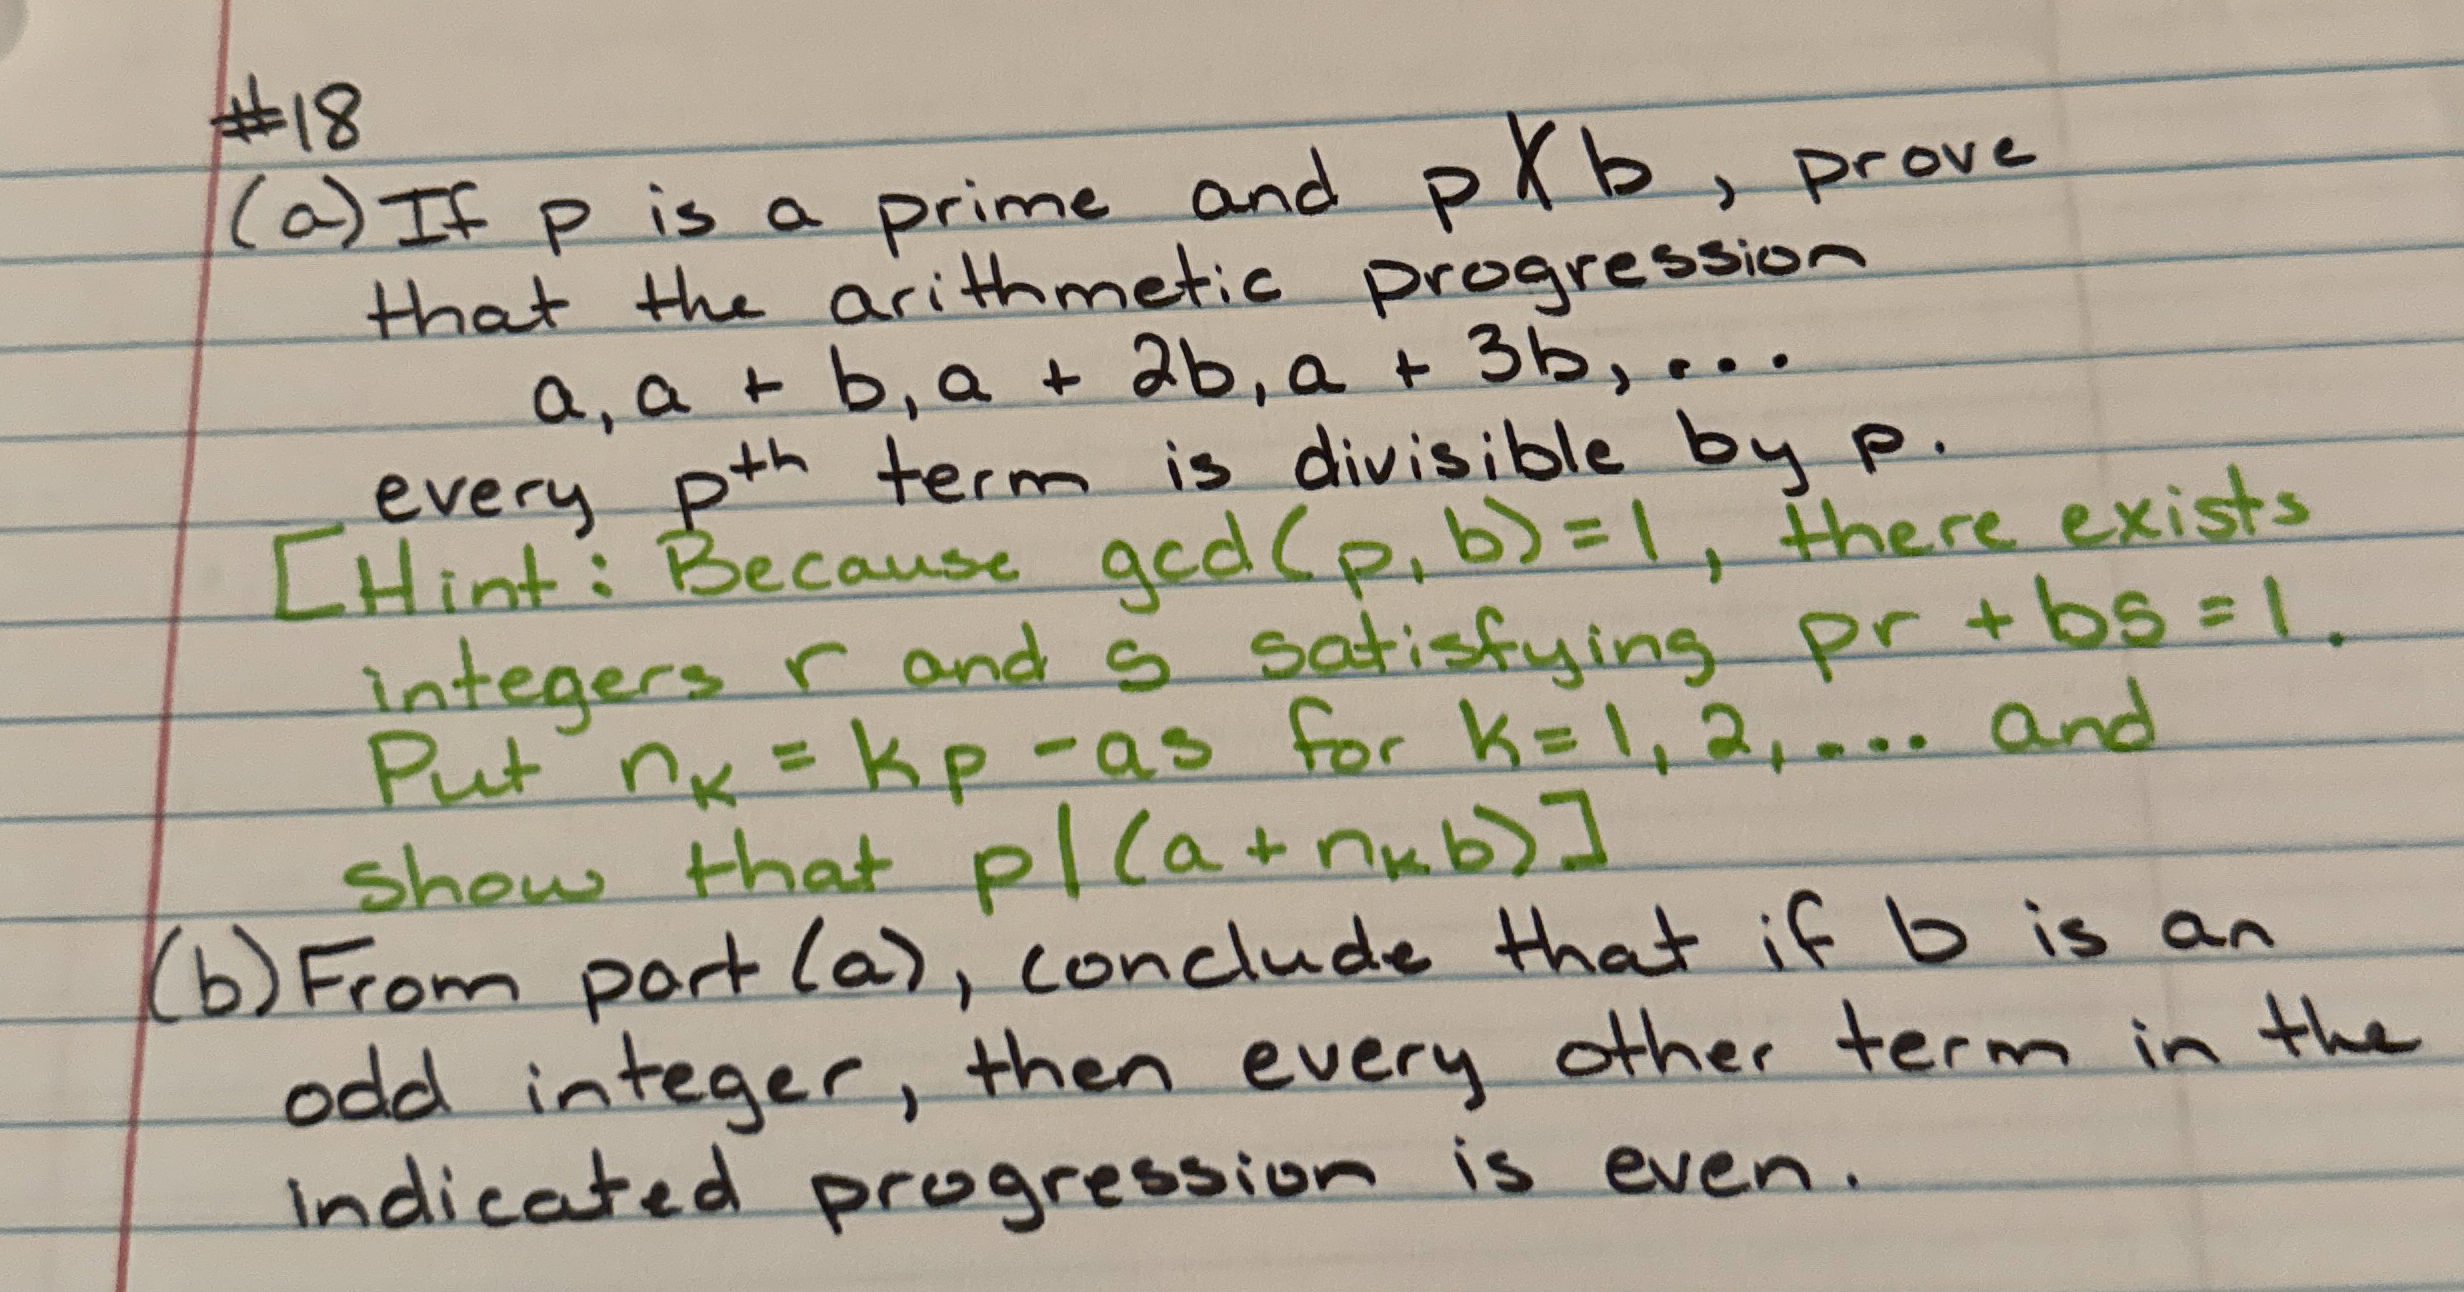 #18
(a) If p is a prime and p∤b, prove
that the arithmetic progression
a, a + b, a + 2b, a + 3b, ...
every pth term is divisible by p.
[Hint: Because gcd(p, b) = 1, there exists
integers r and s satisfying pr + bs = 1.
Put nₖ = kp - as for k = 1, 2, .... and
show that p|(a + nₖb)]
(b) From part (a), conclude that if b is an
odd integer, then every other term in the
indicated progression is even.